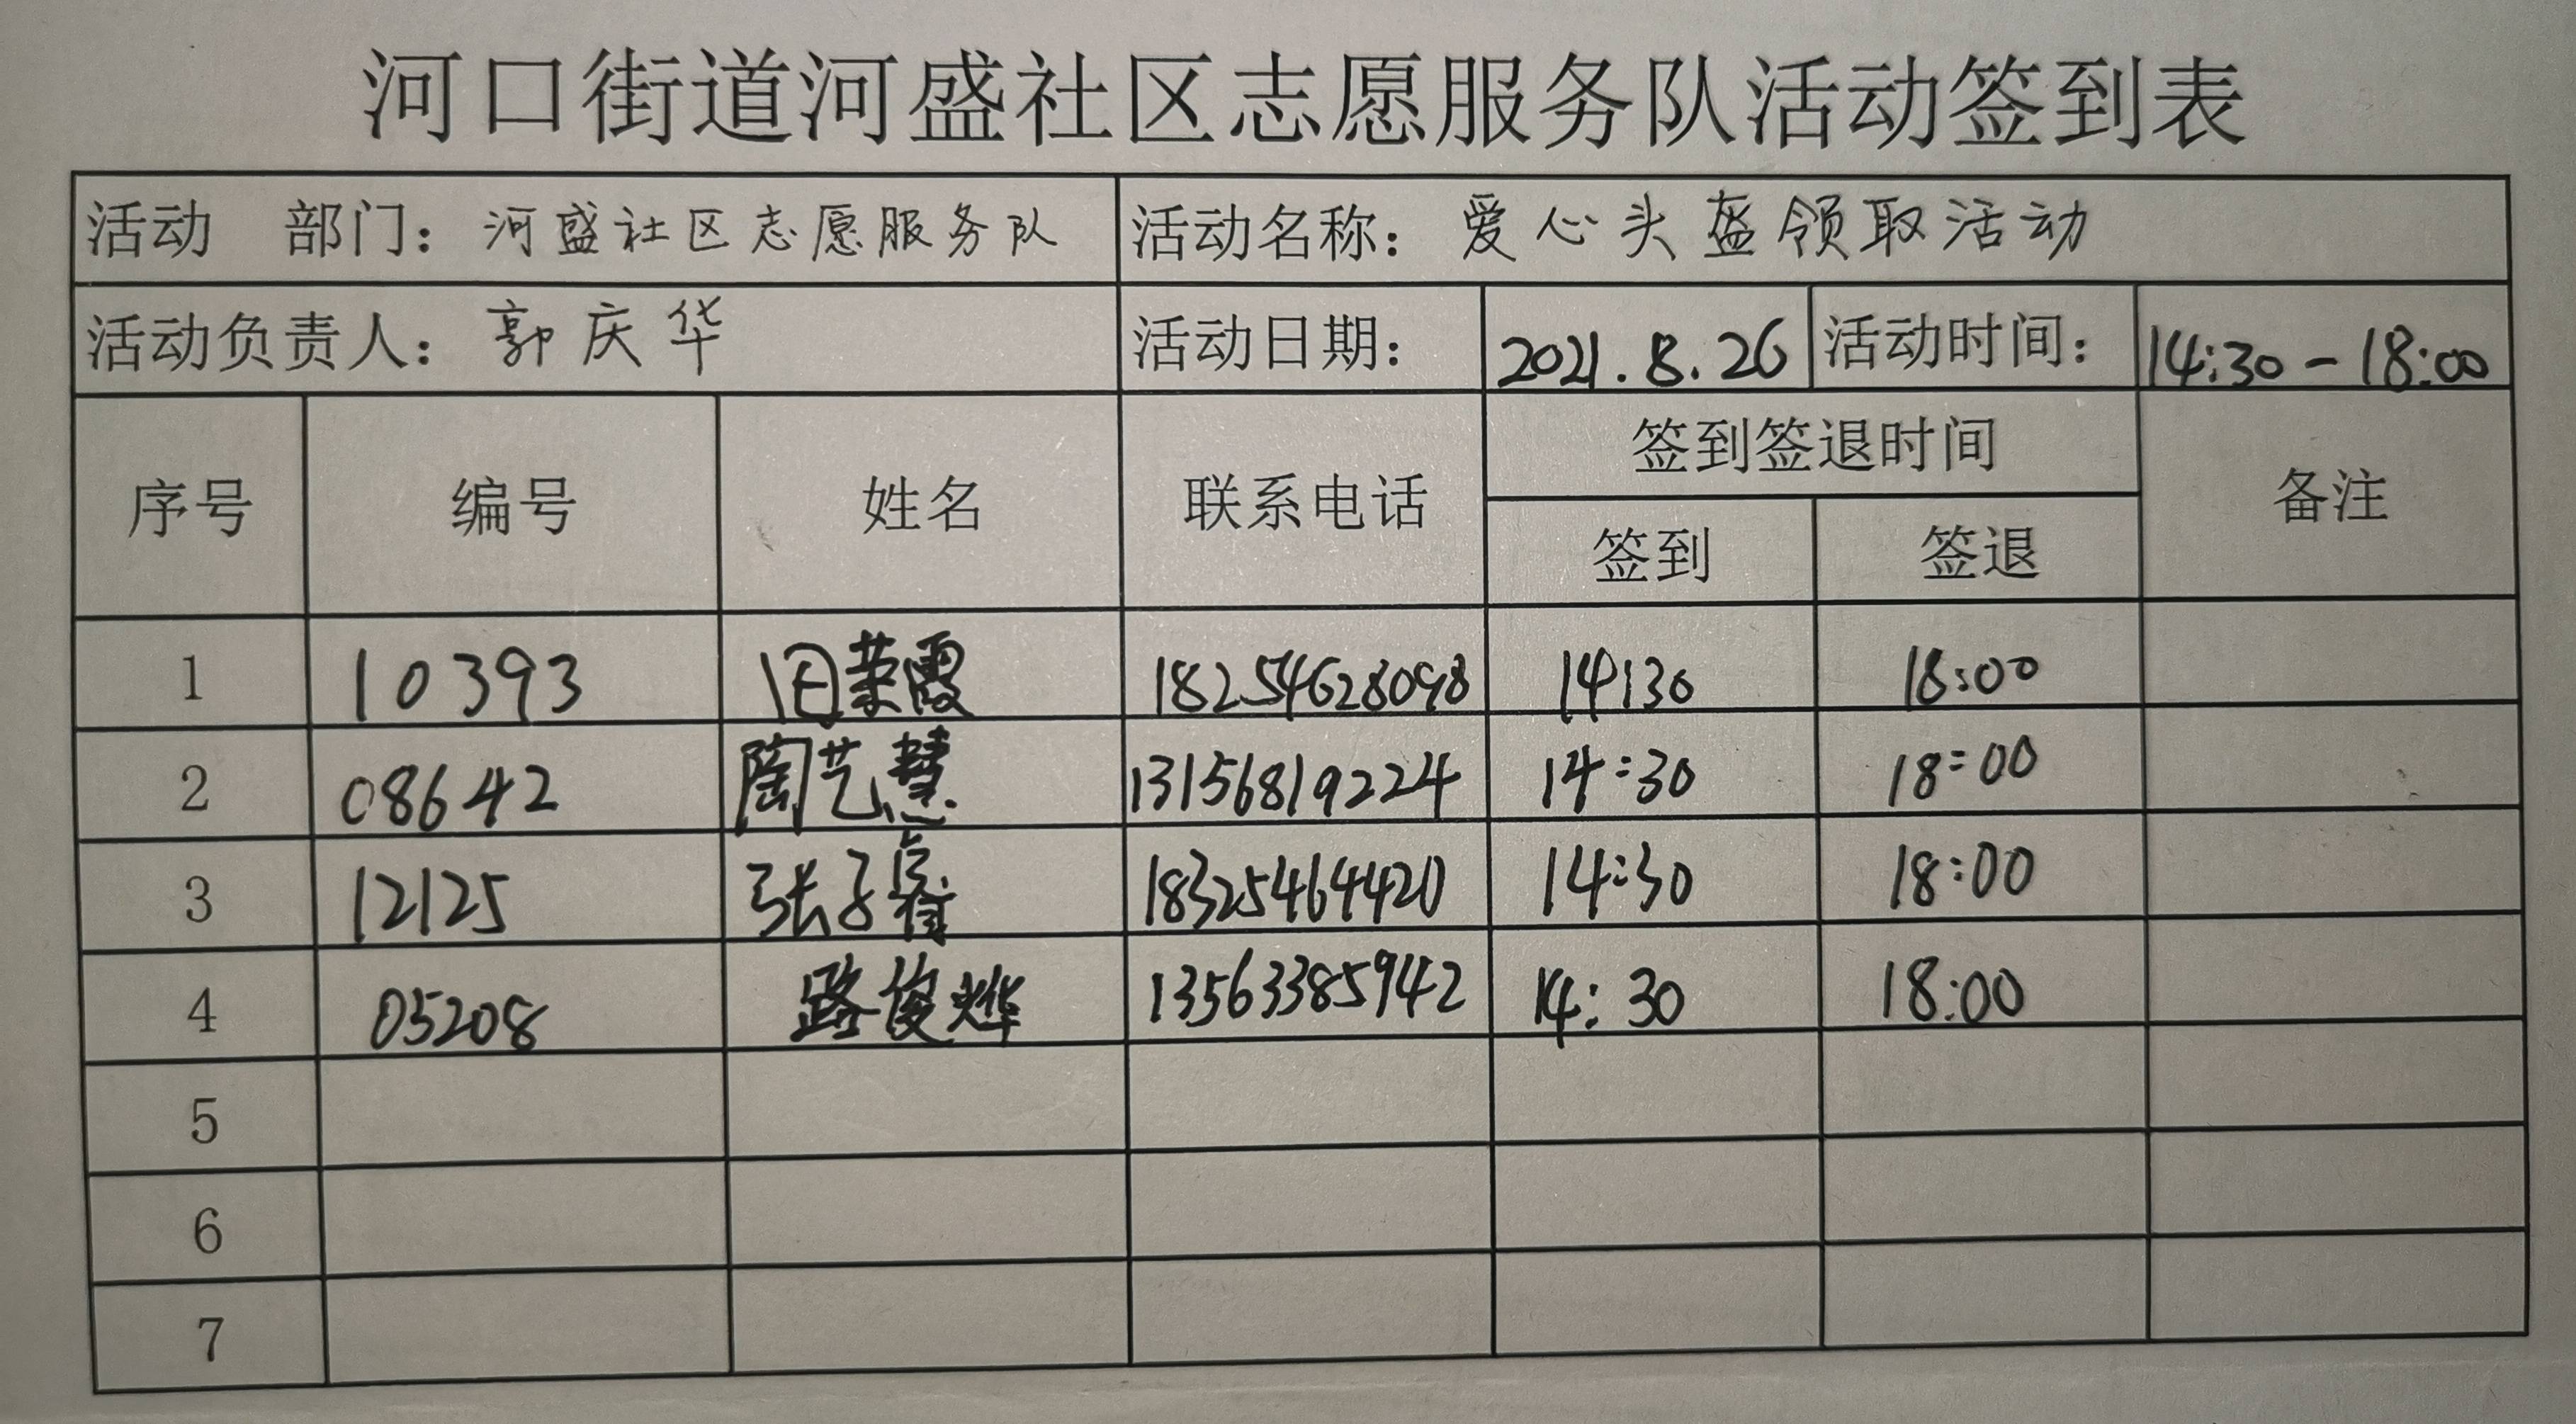 河口街道河盛社区志愿服务队活动签到表
活动 部门：河盛社区志愿服务队 活动名称：爱心头盔领取活动
活动负责人：郭庆华 活动日期： 2021.8.26 活动时间： 14:30-18:00
序号 编号 姓名 联系电话 签到签退时间 备注
签到 签退
1 10393 荣霞 18254628098 14:30 18:00
2 08642 陶艺慧 13156819224 14:30 18:00
3 12125 张子睿 18325464420 14:30 18:00
4 05208 路俊烨 13563385942 14:30 18:00
5
6
7